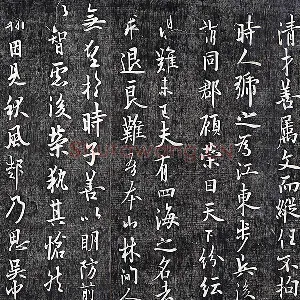 清才善屬文而縱任不拘
時人號之為江東步兵後
謂同郡顧榮曰天下紛紜
難未已夫有四海之名者
求退良難吾本山林間人
無望於時子善以明防前
以智慮後榮執其愴然
翰因見秋風起乃思吳中